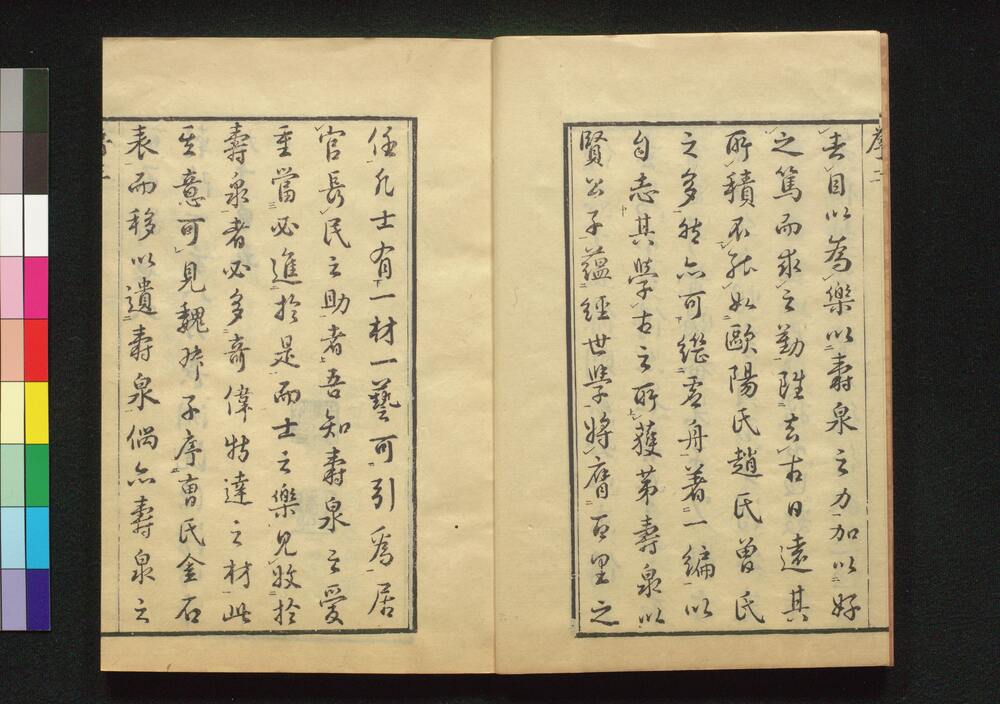 目以為樂以壽泉之力加以好
之篤而求之勤雖去古日遠其
所積不能如歐陽氏趙氏曾氏
之多然亦可繼虛舟著一編以
自志其學古之所獲第壽泉以
賢公子蘊經世學將膺百里之
任凡士有一材一藝可引為居
官長民之助者吾知壽泉之愛
重當必進於是而士之樂見收於
壽泉者必多奇偉特達之材此
其意可見魏叔子序曹氏金石
表而移以遺壽泉倘亦壽泉之